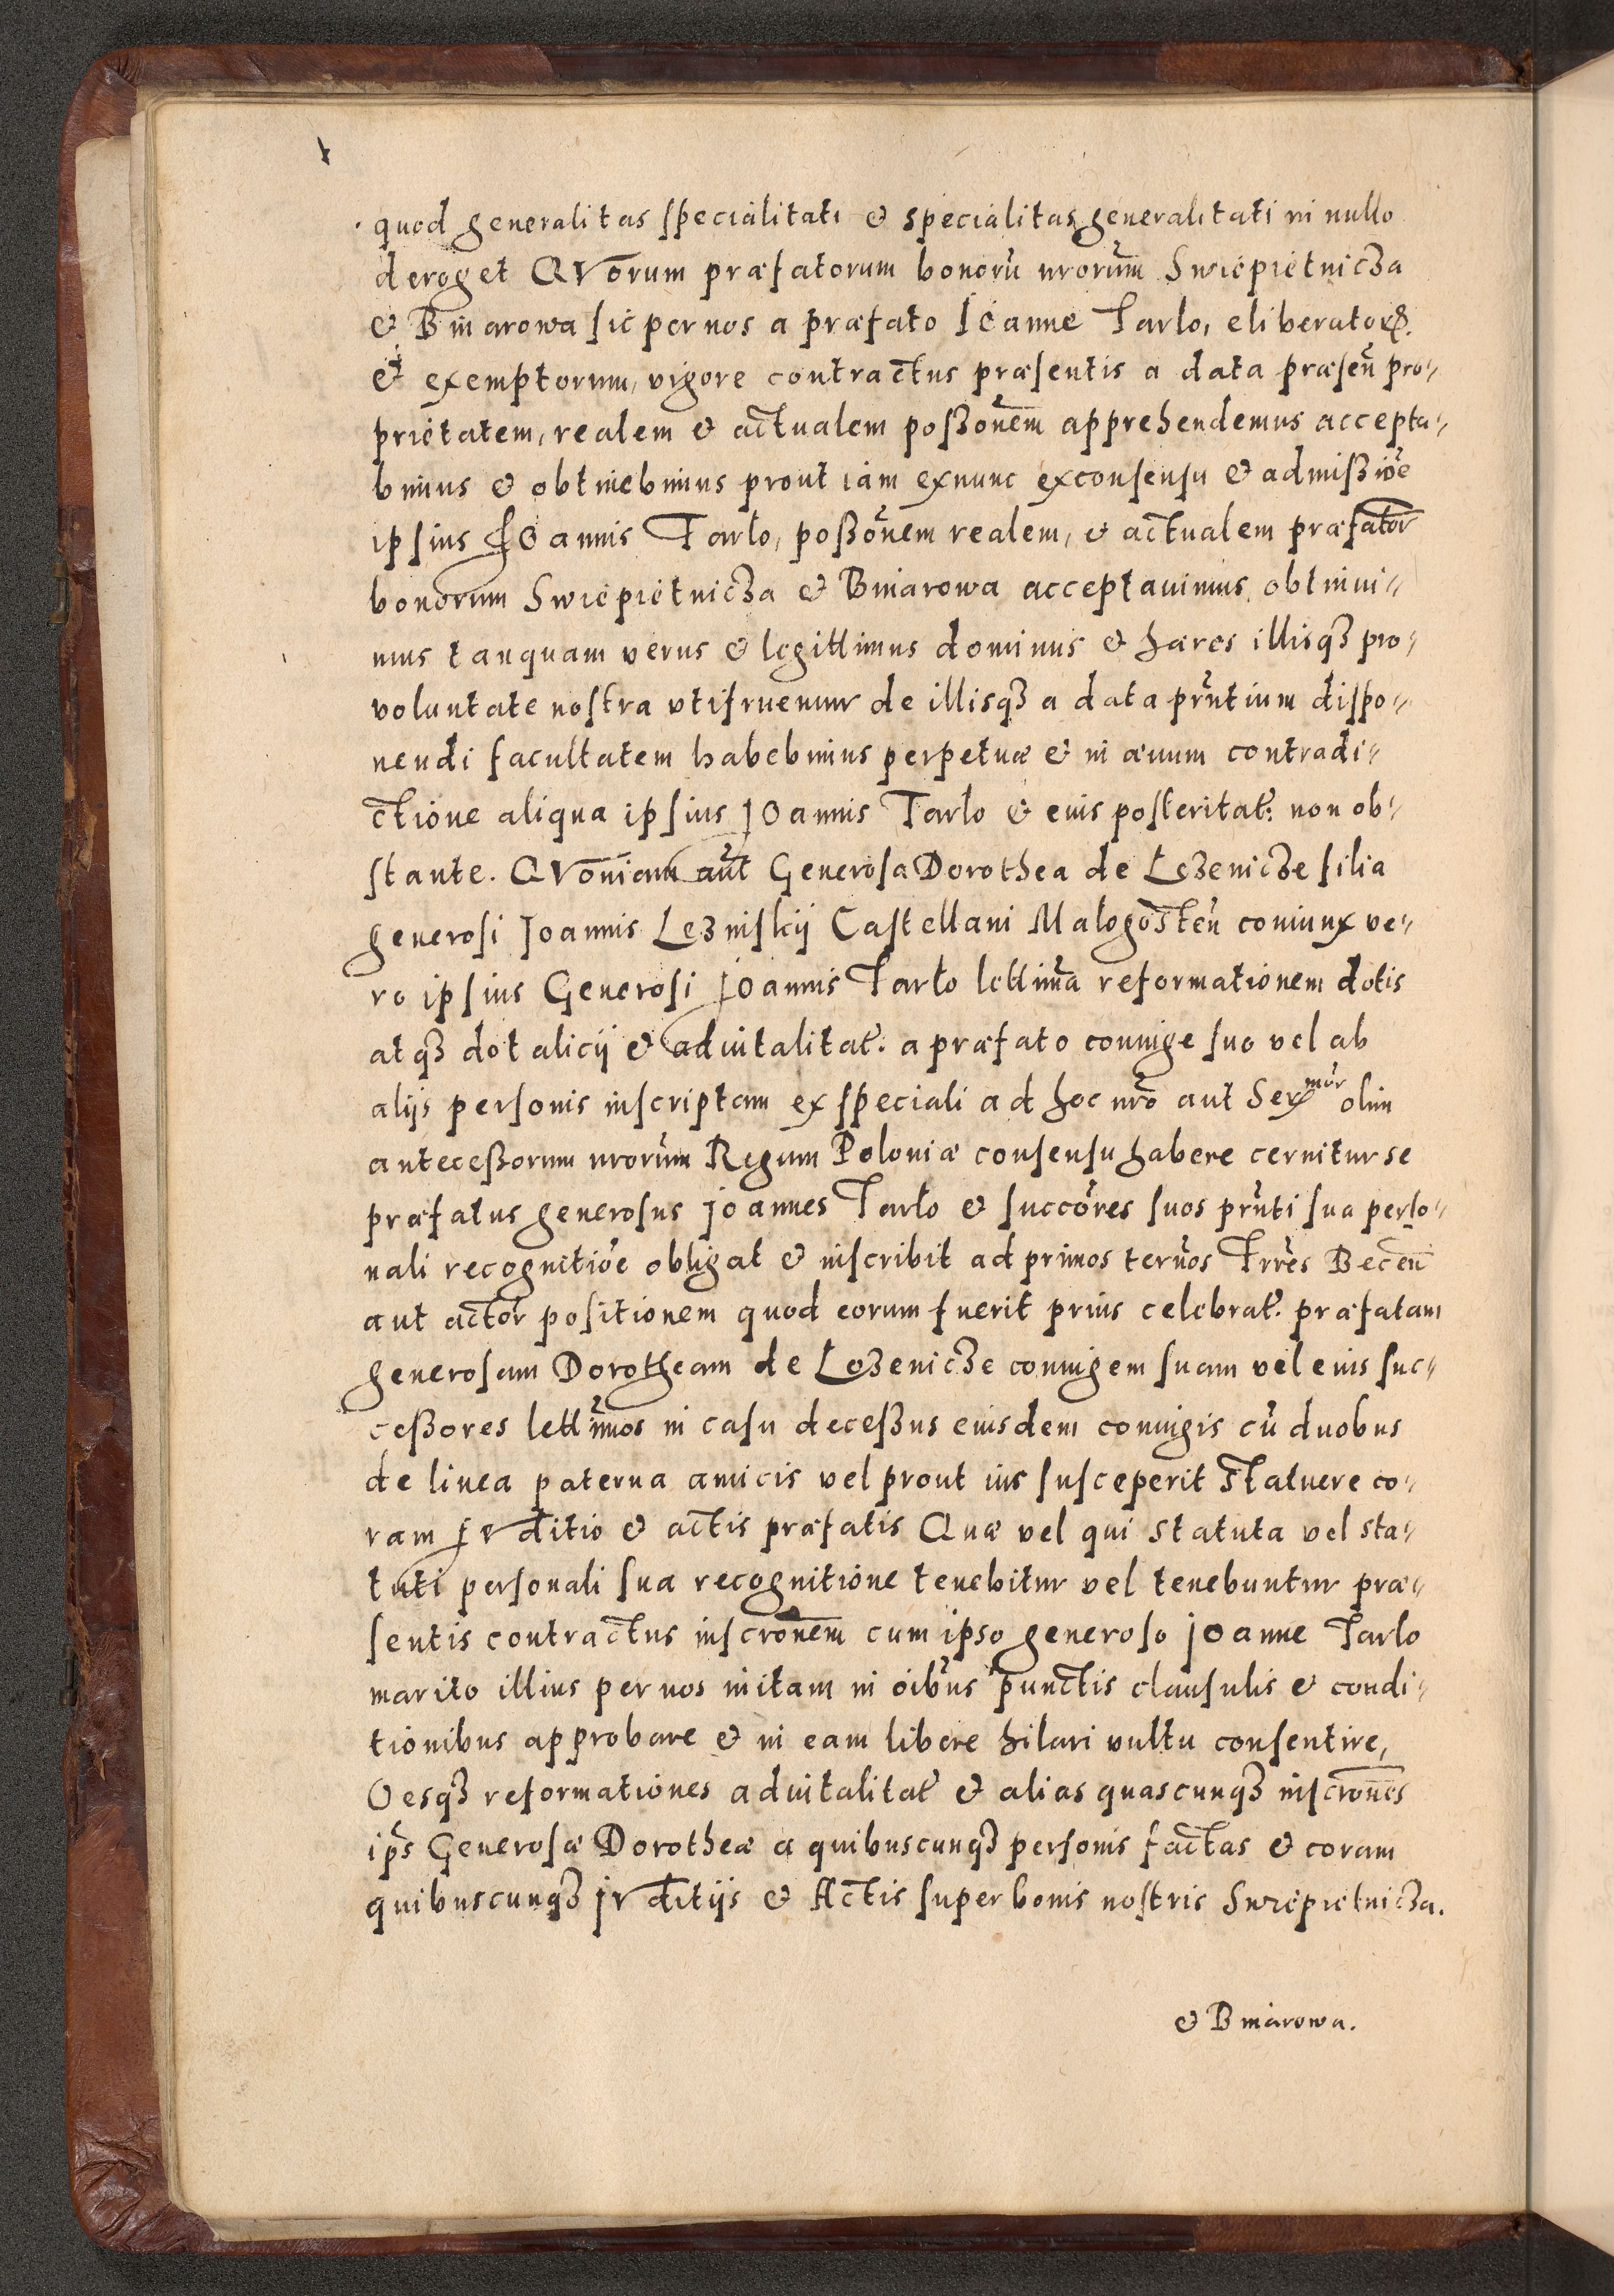 quod generalitas specialitati & specialitas generalitati in nullo
deroget QVorum præfatorum bonorũ nrorum̃ Swiepietnicza
& Binarowa sic per nos a præfato Ioanne Tarlo, eliberatoꝝ.
et exemptorum, vigore contractus præsentis a data præseñ pro-
prietatem, realem & actualem poßonẽm apprehendemus accepta-
bimus & obtinebimus prout iam exnunc exconsensu & admißiõe
ipsius Ioannis Tarlo, poßonẽm realem, & actualem præfator̃
bonorum Swiepietnicza & Binarowa acceptauimus obtinui-
mus tanquam verus & legittimus dominus & hæres illisqȝ pro-
voluntate nostra vtifruemur de illisqȝ a data prñtium dispo-
nendi facultatem habebimus perpetuæ & in æuum contradi-
ctione aliqua ipsius Ioannis Tarlo & eius posteritat̃: non ob-
stante. QVoniam aũt Generosa Dorothea de Lezenicze filia
generosi Joannis Lezniskij Castellani Malogosteñ coniunx ve-
ro ipsius Generosi Joannis Tarlo lettim̃a reformationem dotis
atqȝ dotalicij & aduitalitat̃. a præfato coniuge suo vel ab
aliis personis inscriptam ex speciali ad hoc nr̃o aut Sermor̃ olim
anteceßorum nrorum̃ Regum Poloniæ consensu habere cernitur se
præfatus generosus Joannes Tarlo & succõres suos prñti sua perso-
nali recognitiõe obligat & inscribit ad primos termõs Trr̃es Beceñ
aut actor̃ positionem quod eorum fuerit prius celebrat̃. præfatam
generosam Dorotheam de Lezenicze coniugem suam vel eius suc-
ceßores lettim̃os in casu deceßus eiusdem coniugis cũ duobus
de linea paterna amicis vel prout ius susceperit statuere co-
ram JVditio & actis præfatis Quæ vel qui statuta vel sta-
tuti personali sua recognitione tenebitur vel tenebuntur præ-
sentis contractus inscronẽm cum ipso generoso Joanne Tarlo
marito illius per nos initam in oĩbus punctis clausulis & condi-
tionibus approbare & in eam libere hilari vultu consentire,
Oesqȝ reformationes aduitalitat̃ & alias quascunqȝ inscronẽs
ip̃s Generosæ Dorotheæ a quibuscunqȝ personis factas & coram
quibuscunqȝ JVditijs & Actis super bonis nostris Swiepietnicza.
& Binarowa.